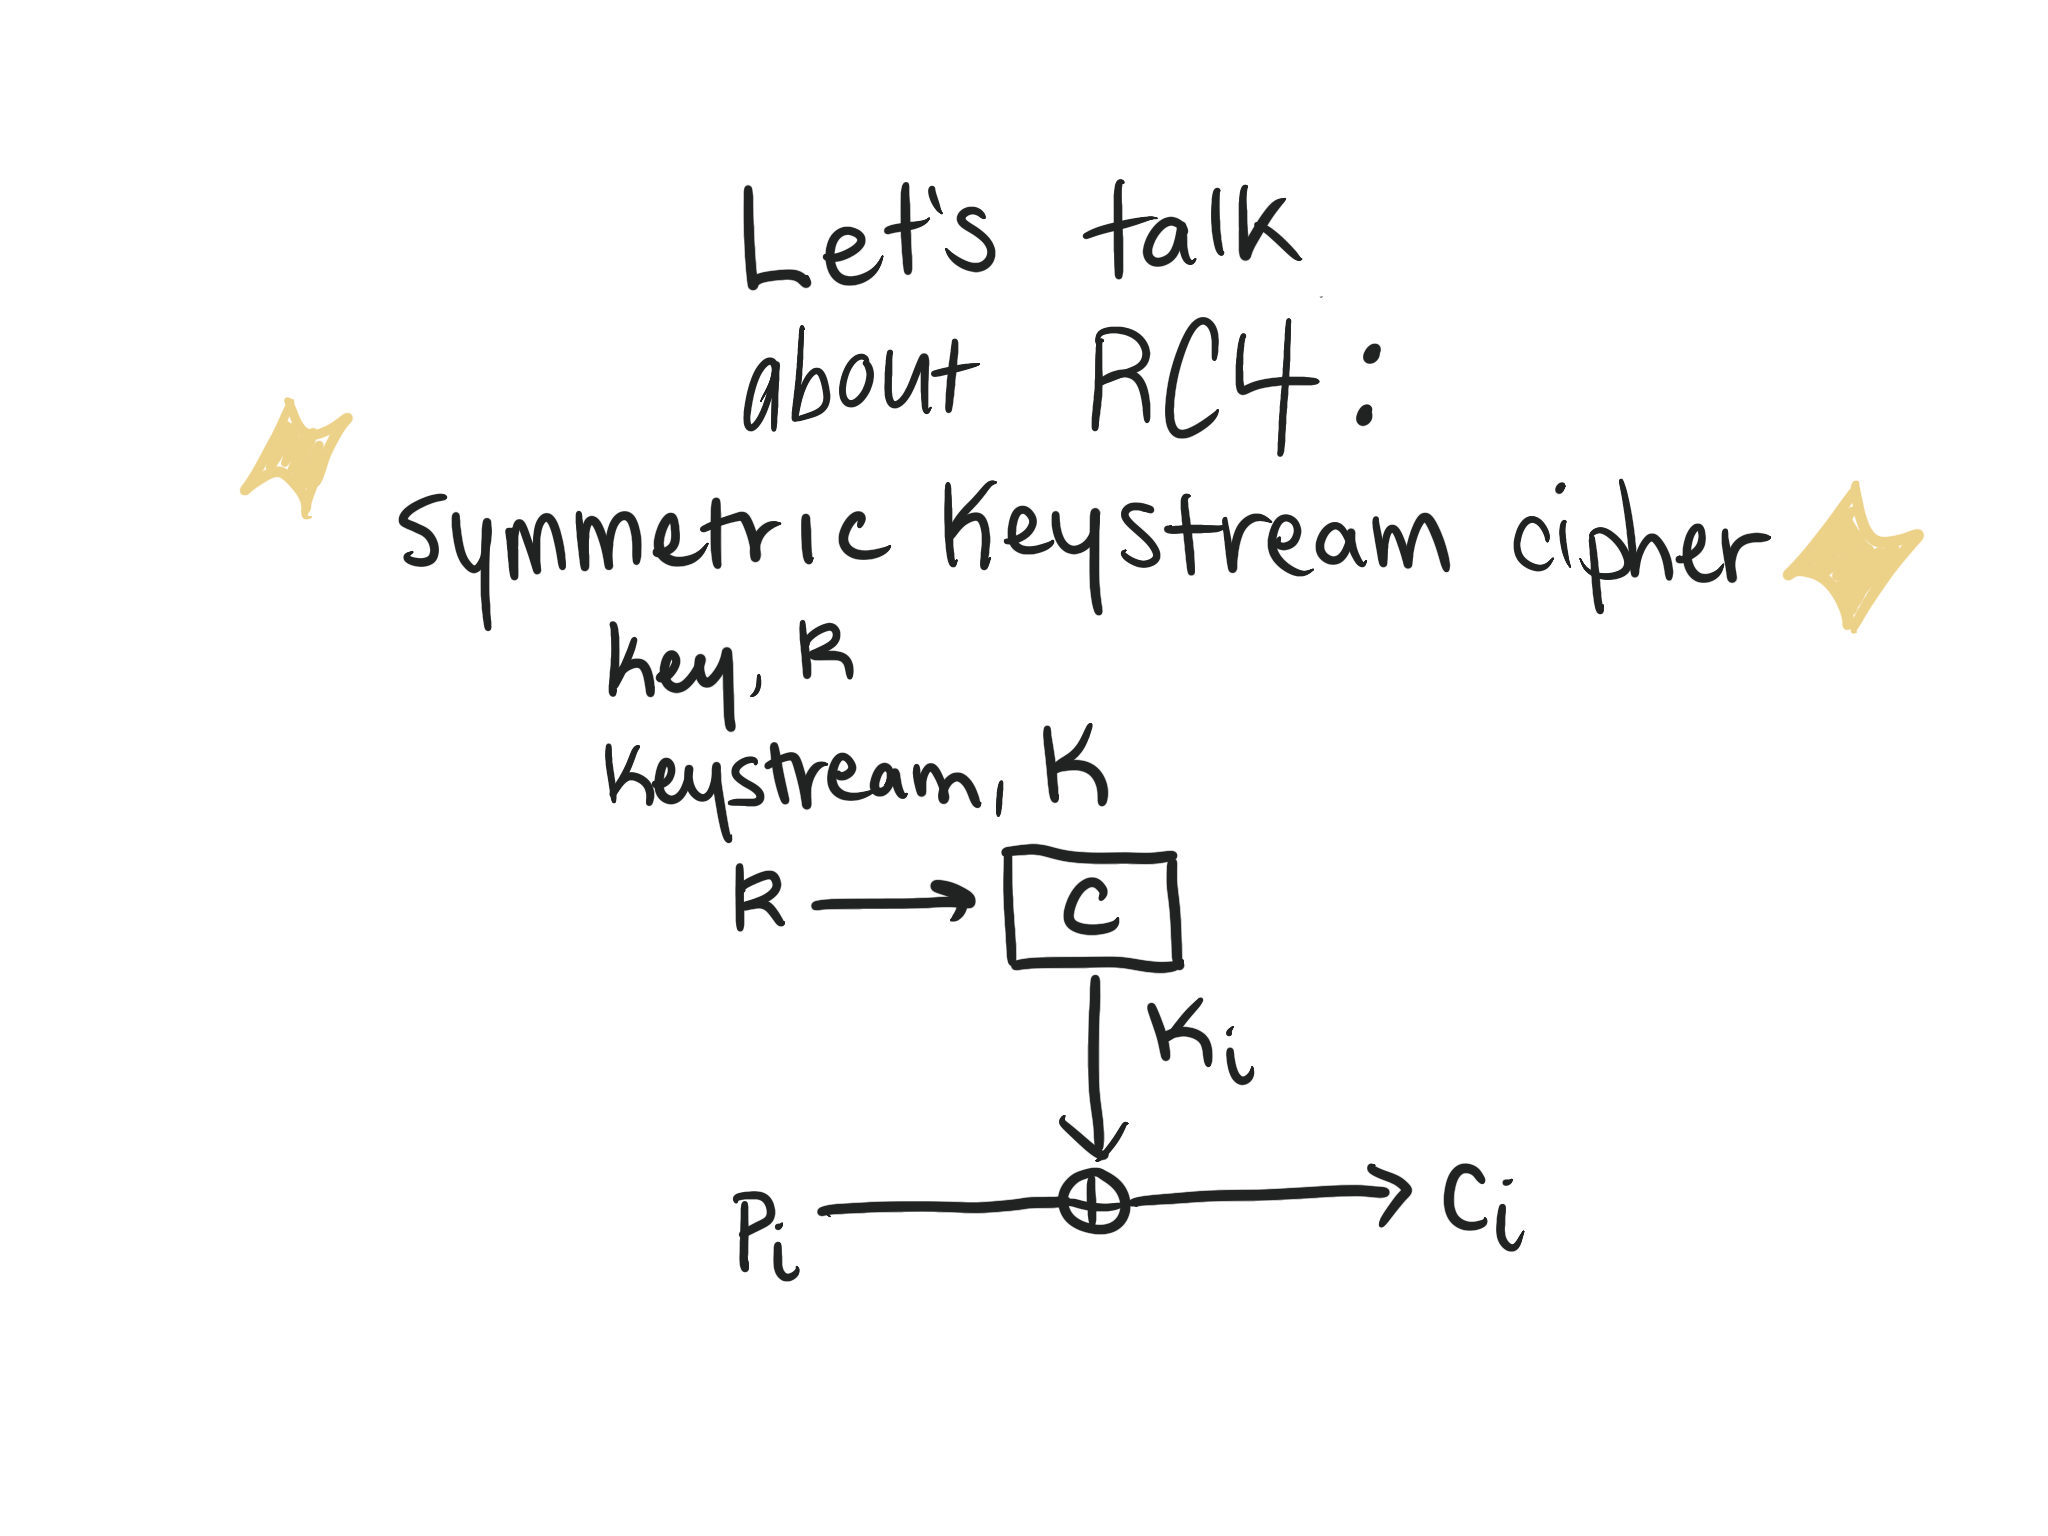 Let's talk
about RC4:
symmetric keystream cipher
key, k
keystream, K
k
C
Ki
Pi
Ci